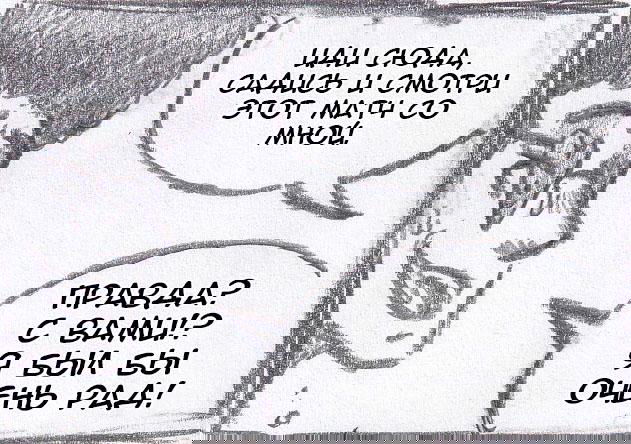 ИДИ СЮДА,
САДИСЬ И СМОТРИ
ЭТОТ МАТЧ СО
МНОЙ.
ПРАВДА?
С ВАМИ!?
Я БЫЛ БЫ
ОЧЕНЬ РАД!